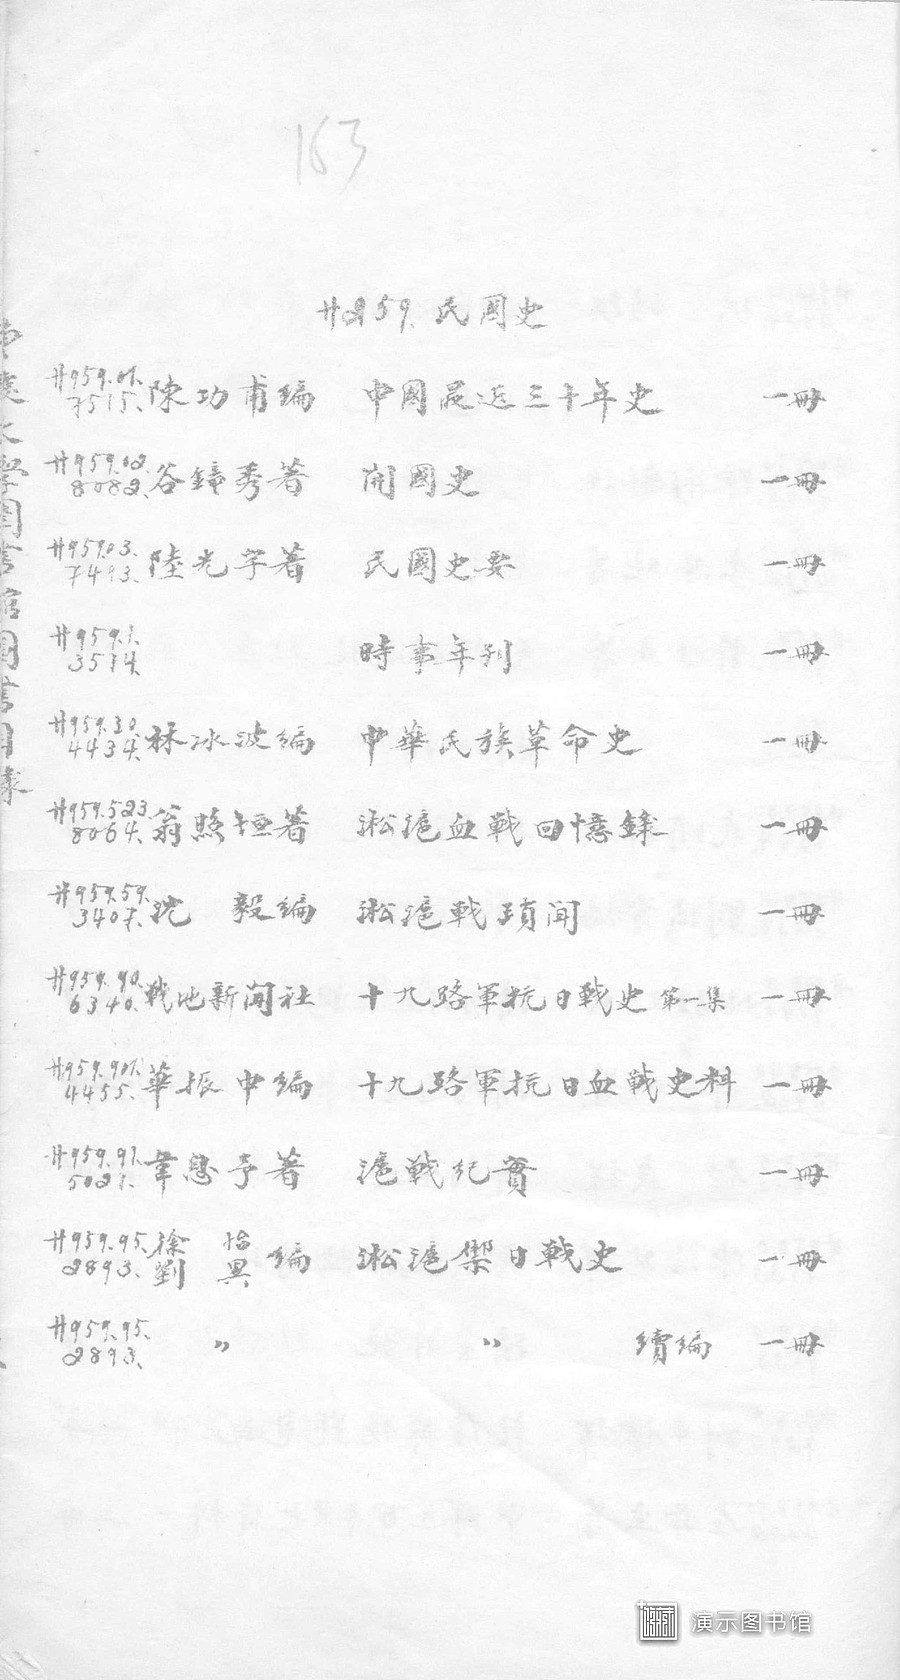 163
廿959. 民國史
廿959.01. 7515. 陳功甫編 中國最近三十年史 一冊
廿959.02. 8082. 谷鐘秀著 開國史 一冊
廿959.03. 7493. 陸光宇著 民國史要 一冊
廿959.1. 3514. 時事年刊 一冊
廿959.30. 4434. 林冰波編 中華民族革命史 一冊
廿959.523. 8064. 翁照垣著 淞滬血戰回憶錄 一冊
廿959.59. 3407. 沈毅編 淞滬戰瑣聞 一冊
廿959.90. 6340. 戰地新聞社 十九路軍抗日戰史 第一集 一冊
廿959.901. 4455. 華振中編 十九路軍抗日血戰史料 一冊
廿959.91. 5021. 韋息予著 滬戰紀實 一冊
廿959.95. 2893. 徐怡 劉異 編 淞滬禦日戰史 一冊
廿959.95. 2893. 〃 〃 續編 一冊
大學圖書館圖書目錄
演示图书馆